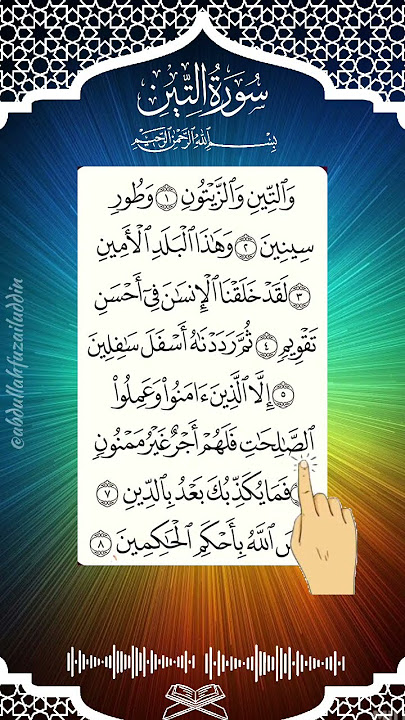 سُورَةُ التِّينِ
بِسْمِ اللَّهِ الرَّحْمَٰنِ الرَّحِيمِ
وَٱلتِّينِ وَٱلزَّيْتُونِ ١ وَطُورِ
سِينِينَ ٢ وَهَٰذَا ٱلْبَلَدِ ٱلْأَمِينِ
٣ لَقَدْ خَلَقْنَا ٱلْإِنسَٰنَ فِىٓ أَحْسَنِ
تَقْوِيمٍ ٤ ثُمَّ رَدَدْنَٰهُ أَسْفَلَ سَٰفِلِينَ
٥ إِلَّا ٱلَّذِينَ ءَامَنُوا۟ وَعَمِلُوا۟
ٱلصَّٰلِحَٰتِ فَلَهُمْ أَجْرٌ غَيْرُ مَمْنُونٍ
فَمَا يُكَذِّبُكَ بَعْدُ بِٱلدِّينِ ٧
ٱللَّهُ بِأَحْكَمِ ٱلْحَٰكِمِينَ ٨
@abdallahfuzailuddin